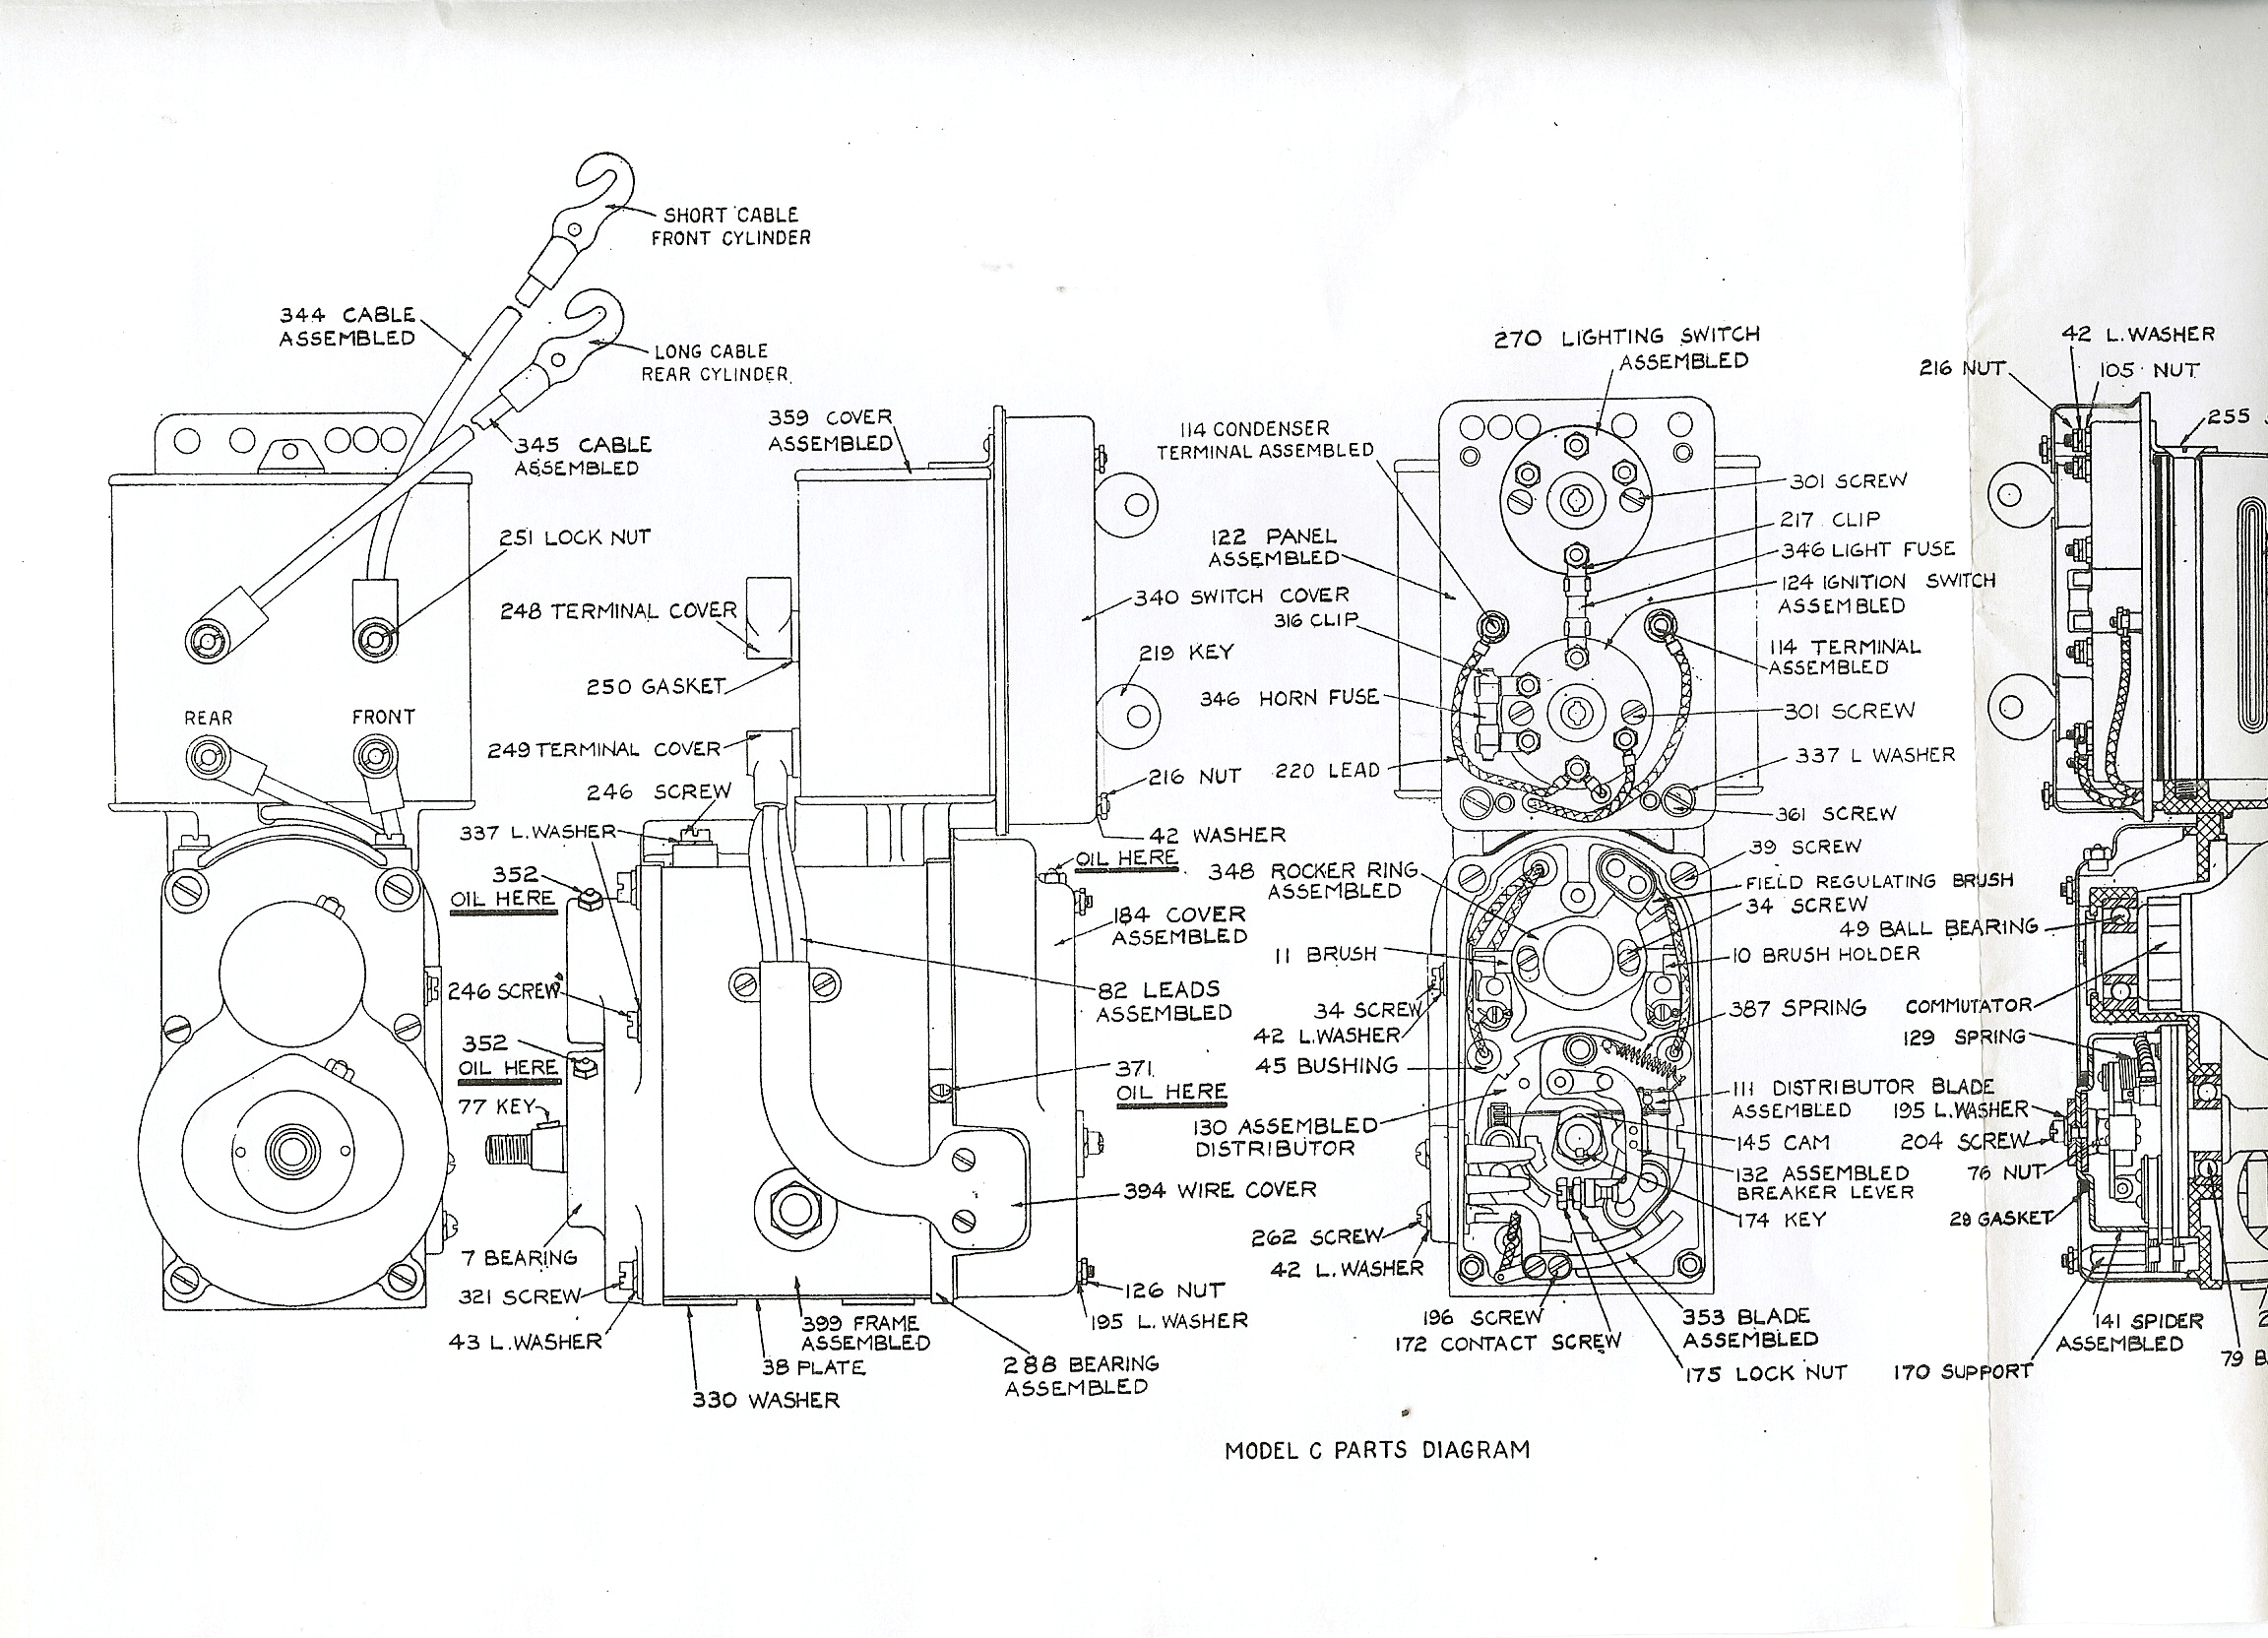 SHORT CABLE
FRONT CYLINDER
344 CABLE
ASSEMBLED
LONG CABLE
REAR CYLINDER
345 CABLE
ASSEMBLED
359 COVER
ASSEMBLED
251 LOCK NUT
248 TERMINAL COVER
250 GASKET
REAR
FRONT
249 TERMINAL COVER
246 SCREW
337 L.WASHER
352
OIL HERE
246 SCREW
352
OIL HERE
77 KEY
7 BEARING
321 SCREW
43 L.WASHER
340 SWITCH COVER
219 KEY
216 NUT
42 WASHER
OIL HERE
184 COVER
ASSEMBLED
82 LEADS
ASSEMBLED
371
OIL HERE
394 WIRE COVER
126 NUT
195 L.WASHER
399 FRAME
ASSEMBLED
38 PLATE
330 WASHER
288 BEARING
ASSEMBLED
270 LIGHTING SWITCH
ASSEMBLED
114 CONDENSER
TERMINAL ASSEMBLED
122 PANEL
ASSEMBLED
316 CLIP
346 HORN FUSE
220 LEAD
348 ROCKER RING
ASSEMBLED
11 BRUSH
34 SCREW
42 L.WASHER
45 BUSHING
130 ASSEMBLED
DISTRIBUTOR
262 SCREW
42 L.WASHER
196 SCREW
172 CONTACT SCREW
301 SCREW
217 CLIP
346 LIGHT FUSE
124 IGNITION SWITCH
ASSEMBLED
114 TERMINAL
ASSEMBLED
301 SCREW
337 L WASHER
361 SCREW
39 SCREW
FIELD REGULATING BRUSH
34 SCREW
49 BALL BEARING
10 BRUSH HOLDER
387 SPRING
COMMUTATOR
129 SPRING
111 DISTRIBUTOR BLADE
ASSEMBLED
195 L.WASHER
145 CAM
204 SCREW
132 ASSEMBLED
BREAKER LEVER
76 NUT
174 KEY
28 GASKET
353 BLADE
ASSEMBLED
175 LOCK NUT
170 SUPPORT
141 SPIDER
ASSEMBLED
79 B
42 L.WASHER
216 NUT
105 NUT
255
MODEL C PARTS DIAGRAM